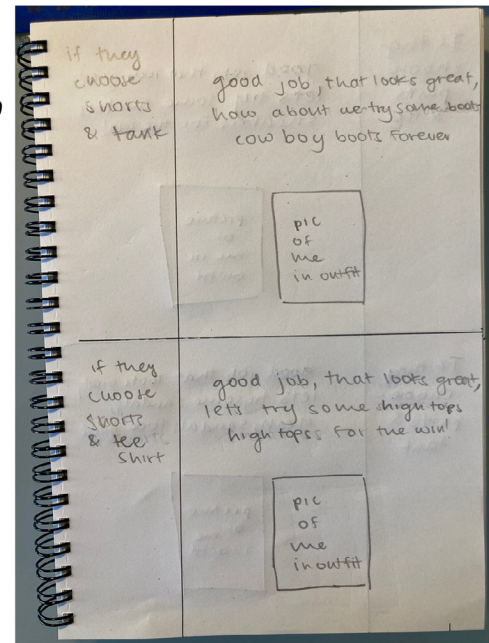 if they
choose
shorts
& tank
good job, that looks great,
how about we try some boots
cow boy boots forever
pic
of
me
in outfit
if they
choose
shorts
& tee
shirt
good job, that looks great,
lets try some high tops
high topss for the win!
pic
of
me
in outfit